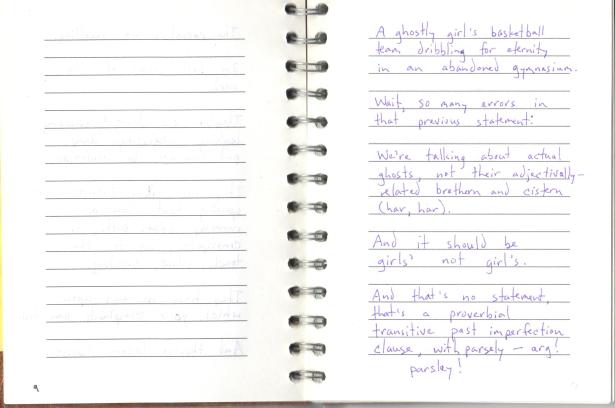 A ghostly girl's basketball
team dribbling for eternity
in an abandoned gymnasium.
Wait, so many errors in
that previous statement:
We're talking about actual
ghosts, not their adjectivally-
related brethern and cistern
(har, har).
And it should be
girls' not girl's.
And that's no statement,
that's a proverbial
transitive past imperfection
clause, with parsely – arg!
parsley!
9